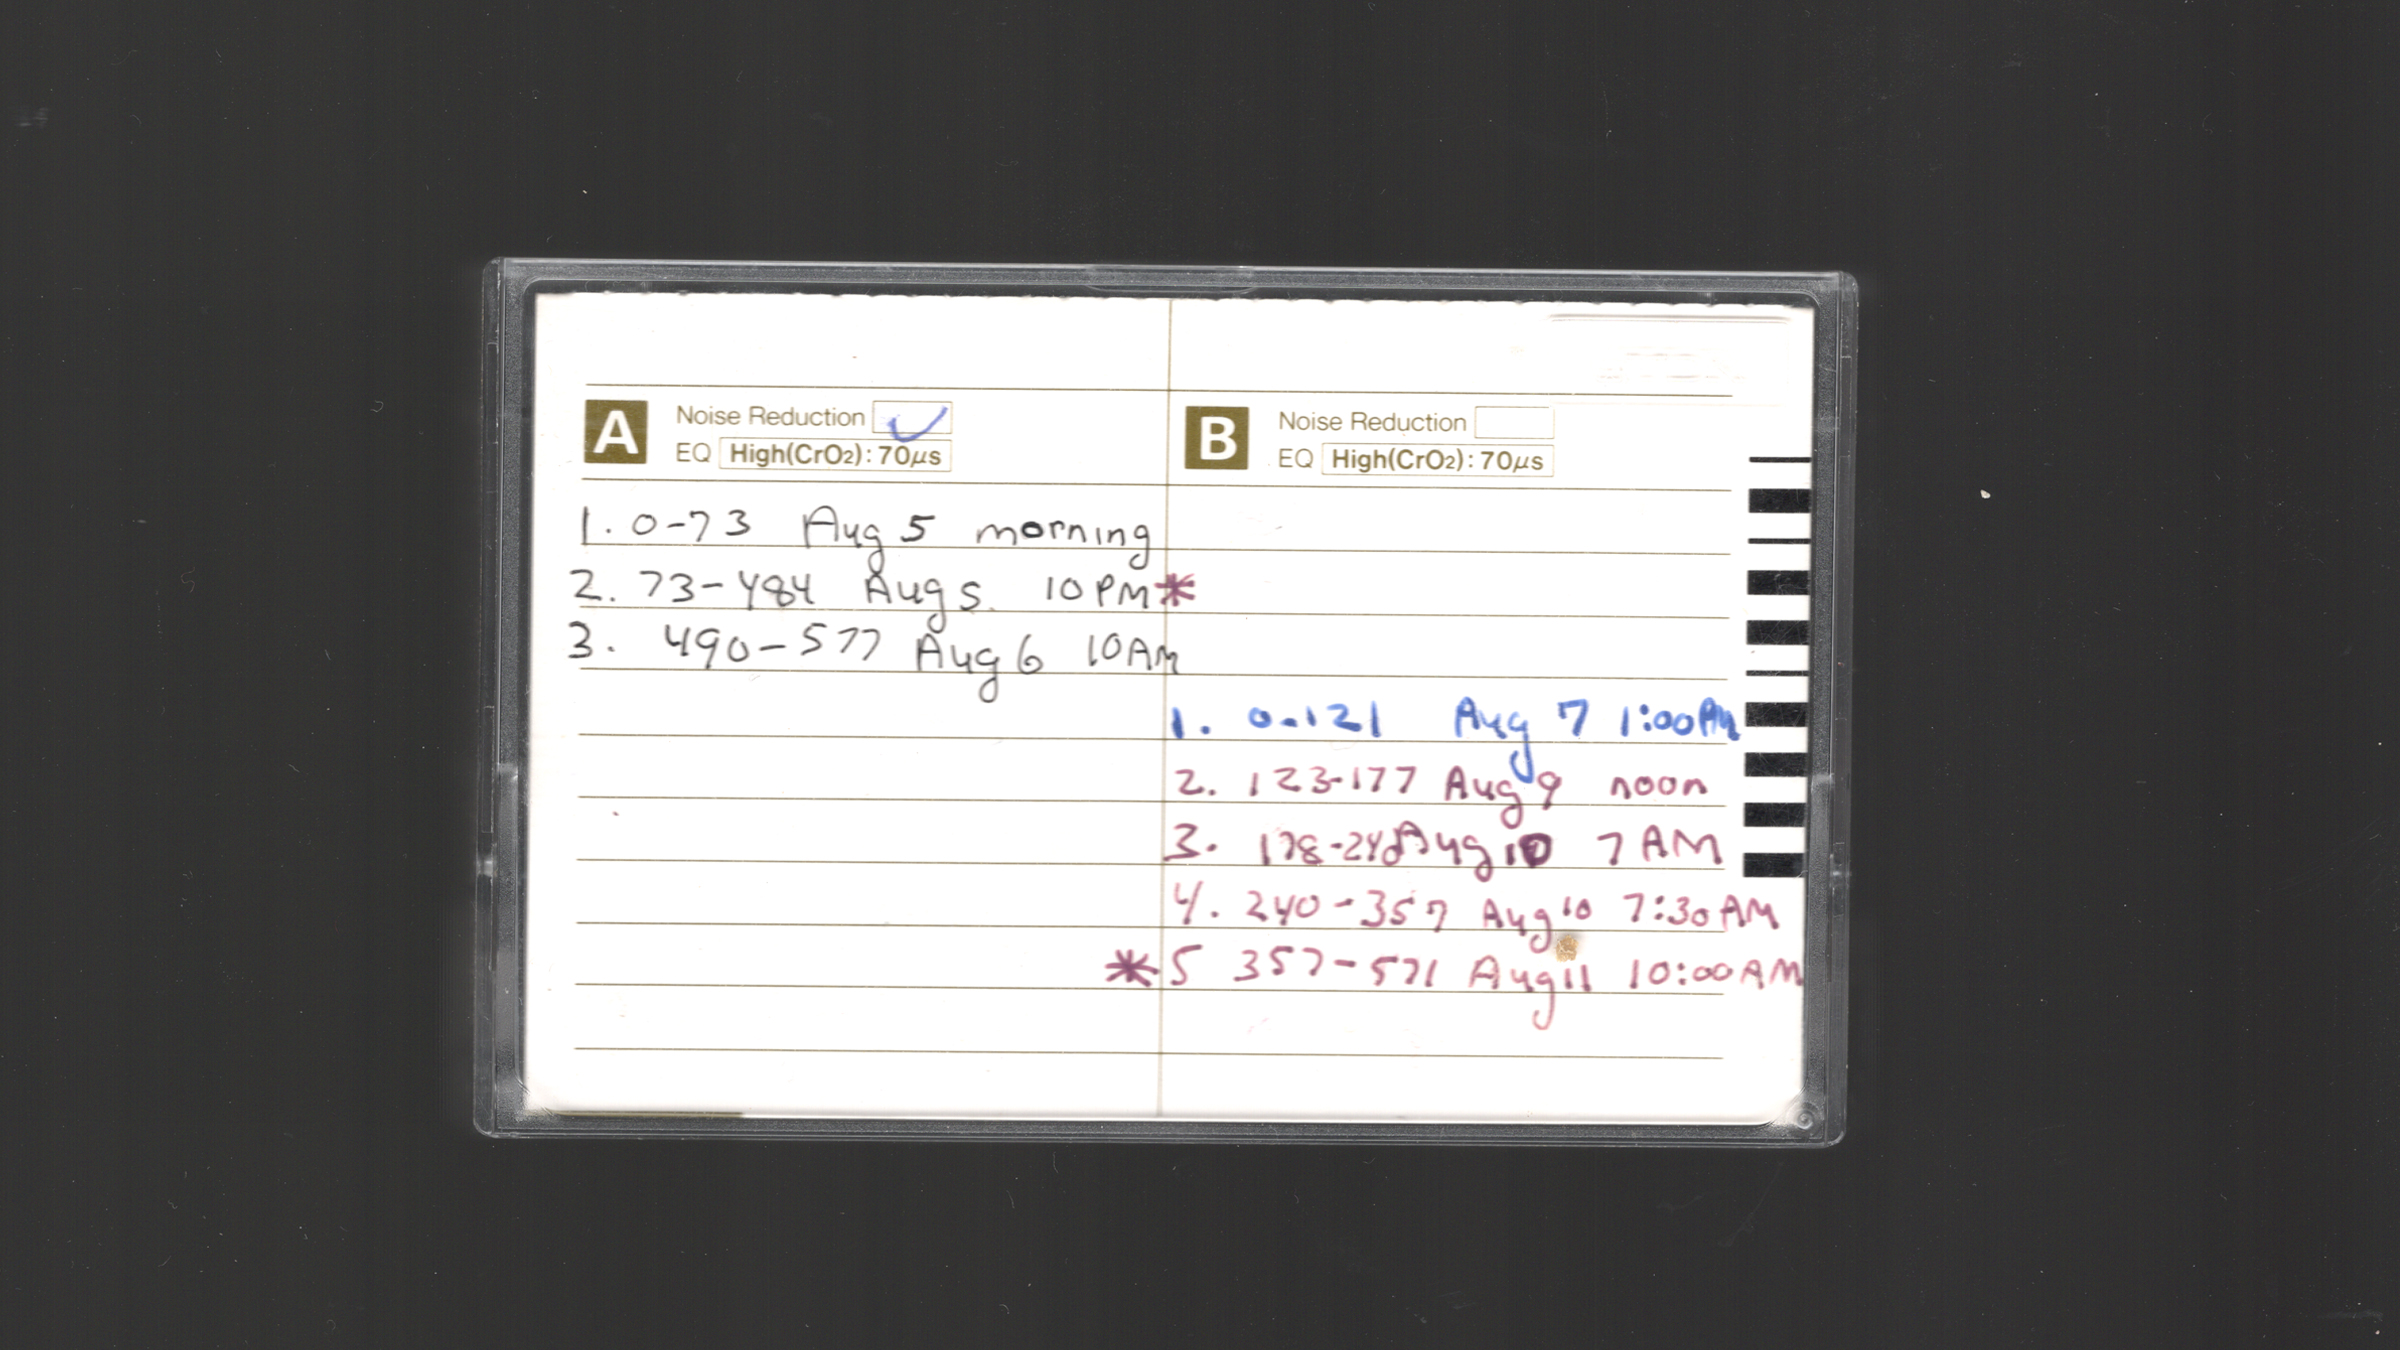 A Noise Reduction ✓
EQ High(CrO2): 70μs
1. 0-73 Aug 5 morning
2. 73-484 Aug 5. 10 PM *
3. 490-577 Aug 6 10AM
B Noise Reduction
EQ High(CrO2): 70μs
1. 0-121 Aug 7 1:00
2. 123-177 Aug 9 noon
3. Aug 10 7 AM
4. 240-357 Aug 10 7:30 AM
* 5 357-571 Aug 11 10:00 AM